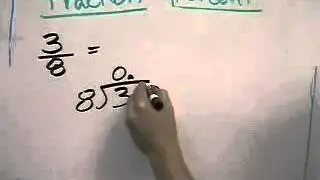 Fraction Percent
3/8 =
0.
8)3